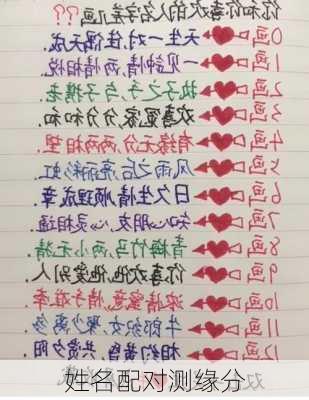 你和你喜欢的人名字差几画??
0画天生一对,佳偶天成.
1画一见钟情,两情相悦.
2画执子之手,与子携老.
3画欢喜冤家,分分和和.
4画有缘无分,两两相望.
5画风雨之后,亮丽彩虹
6画日久生情,顺理成章
7画知心朋友,心灵相通
8画青梅竹马,两小无猜
9画你喜欢他,他爱别人
10画浓情蜜意,情
11画牛郎织女,聚少离多
12画相约黄昏,共赏夕阳.
姓名配对测缘分